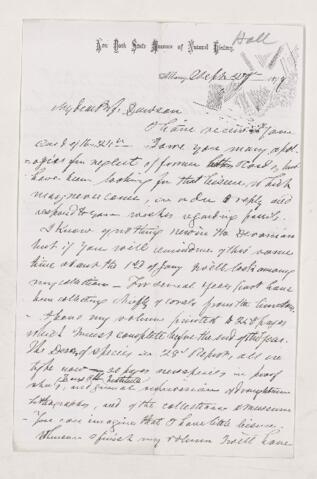 Hall
New York State Museum of Natural History,
Albany, Sept 27th 1879
My dear Prof. Dawson
I have received your
Card of the 24th. I owe you many apol-
ogies for neglect of former letter & card, but
have been looking for that leisure, which
may never come, in order to reply and
respond to your wishes regarding fossils.
I know of nothing new in the Devonian
but if you will remind me of this some
time about the 1st of Jany I will look among
my collections - For several years past have
been collecting chiefly corals from the limestone
I have my volume printed to 268 pages
which I must complete before the end of the year.
The Desc. of species in 28th Report, all in
type now - 20 pages new species in proof
Albany Institute
and general supervision of draughtsmen
lithographers, and of the collections & museum
You can imagine that I have little leisure.
When I finish my volume I will have